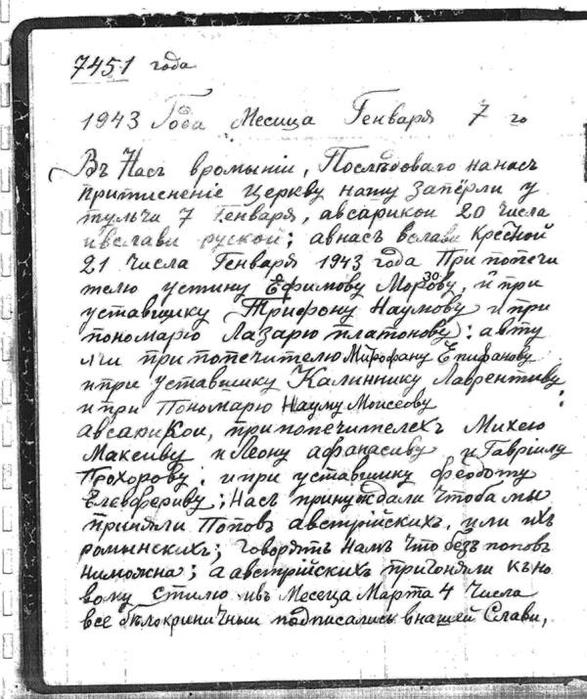 7451 года
1943 Года Месица Генваря 7 го
Въ Насъ вромыніи, Послѣдоваго нанасъ
притиснение церкву нашу запёрли у
тульчи 7 Генваря, авсарикои 20 числа
ивслави руской; авнасъ вслави Кресной
21 числа Генваря 1943 года При попечи
телю устину Ефимову Морозову, и при
уставщику Трифону Наумову и при
пономарю Лазарю платонову: а в ту
льчи при попечителю Митрофану Епифанову
и при уставшику Калиннику Лаврентиву
и при Пономарю Науму Моисеову:
авсарикои, при попечителехъ Михею
Максиву и Леону афанасиву и Гавріилу
Прохорову; и при уставшику феодоту
Елевфериву; Насъ принуждали чтоба мы
приняли Поповъ австрійскихъ, или ихъ
ромынскихъ; говорятъ намъ что безъ поповъ
ниможна; а австрійскихъ пригоняли къ но
вому стилю ивъ Месеца Марта 4 числа
все бѣлокриничныи подписались в нашей Слави,